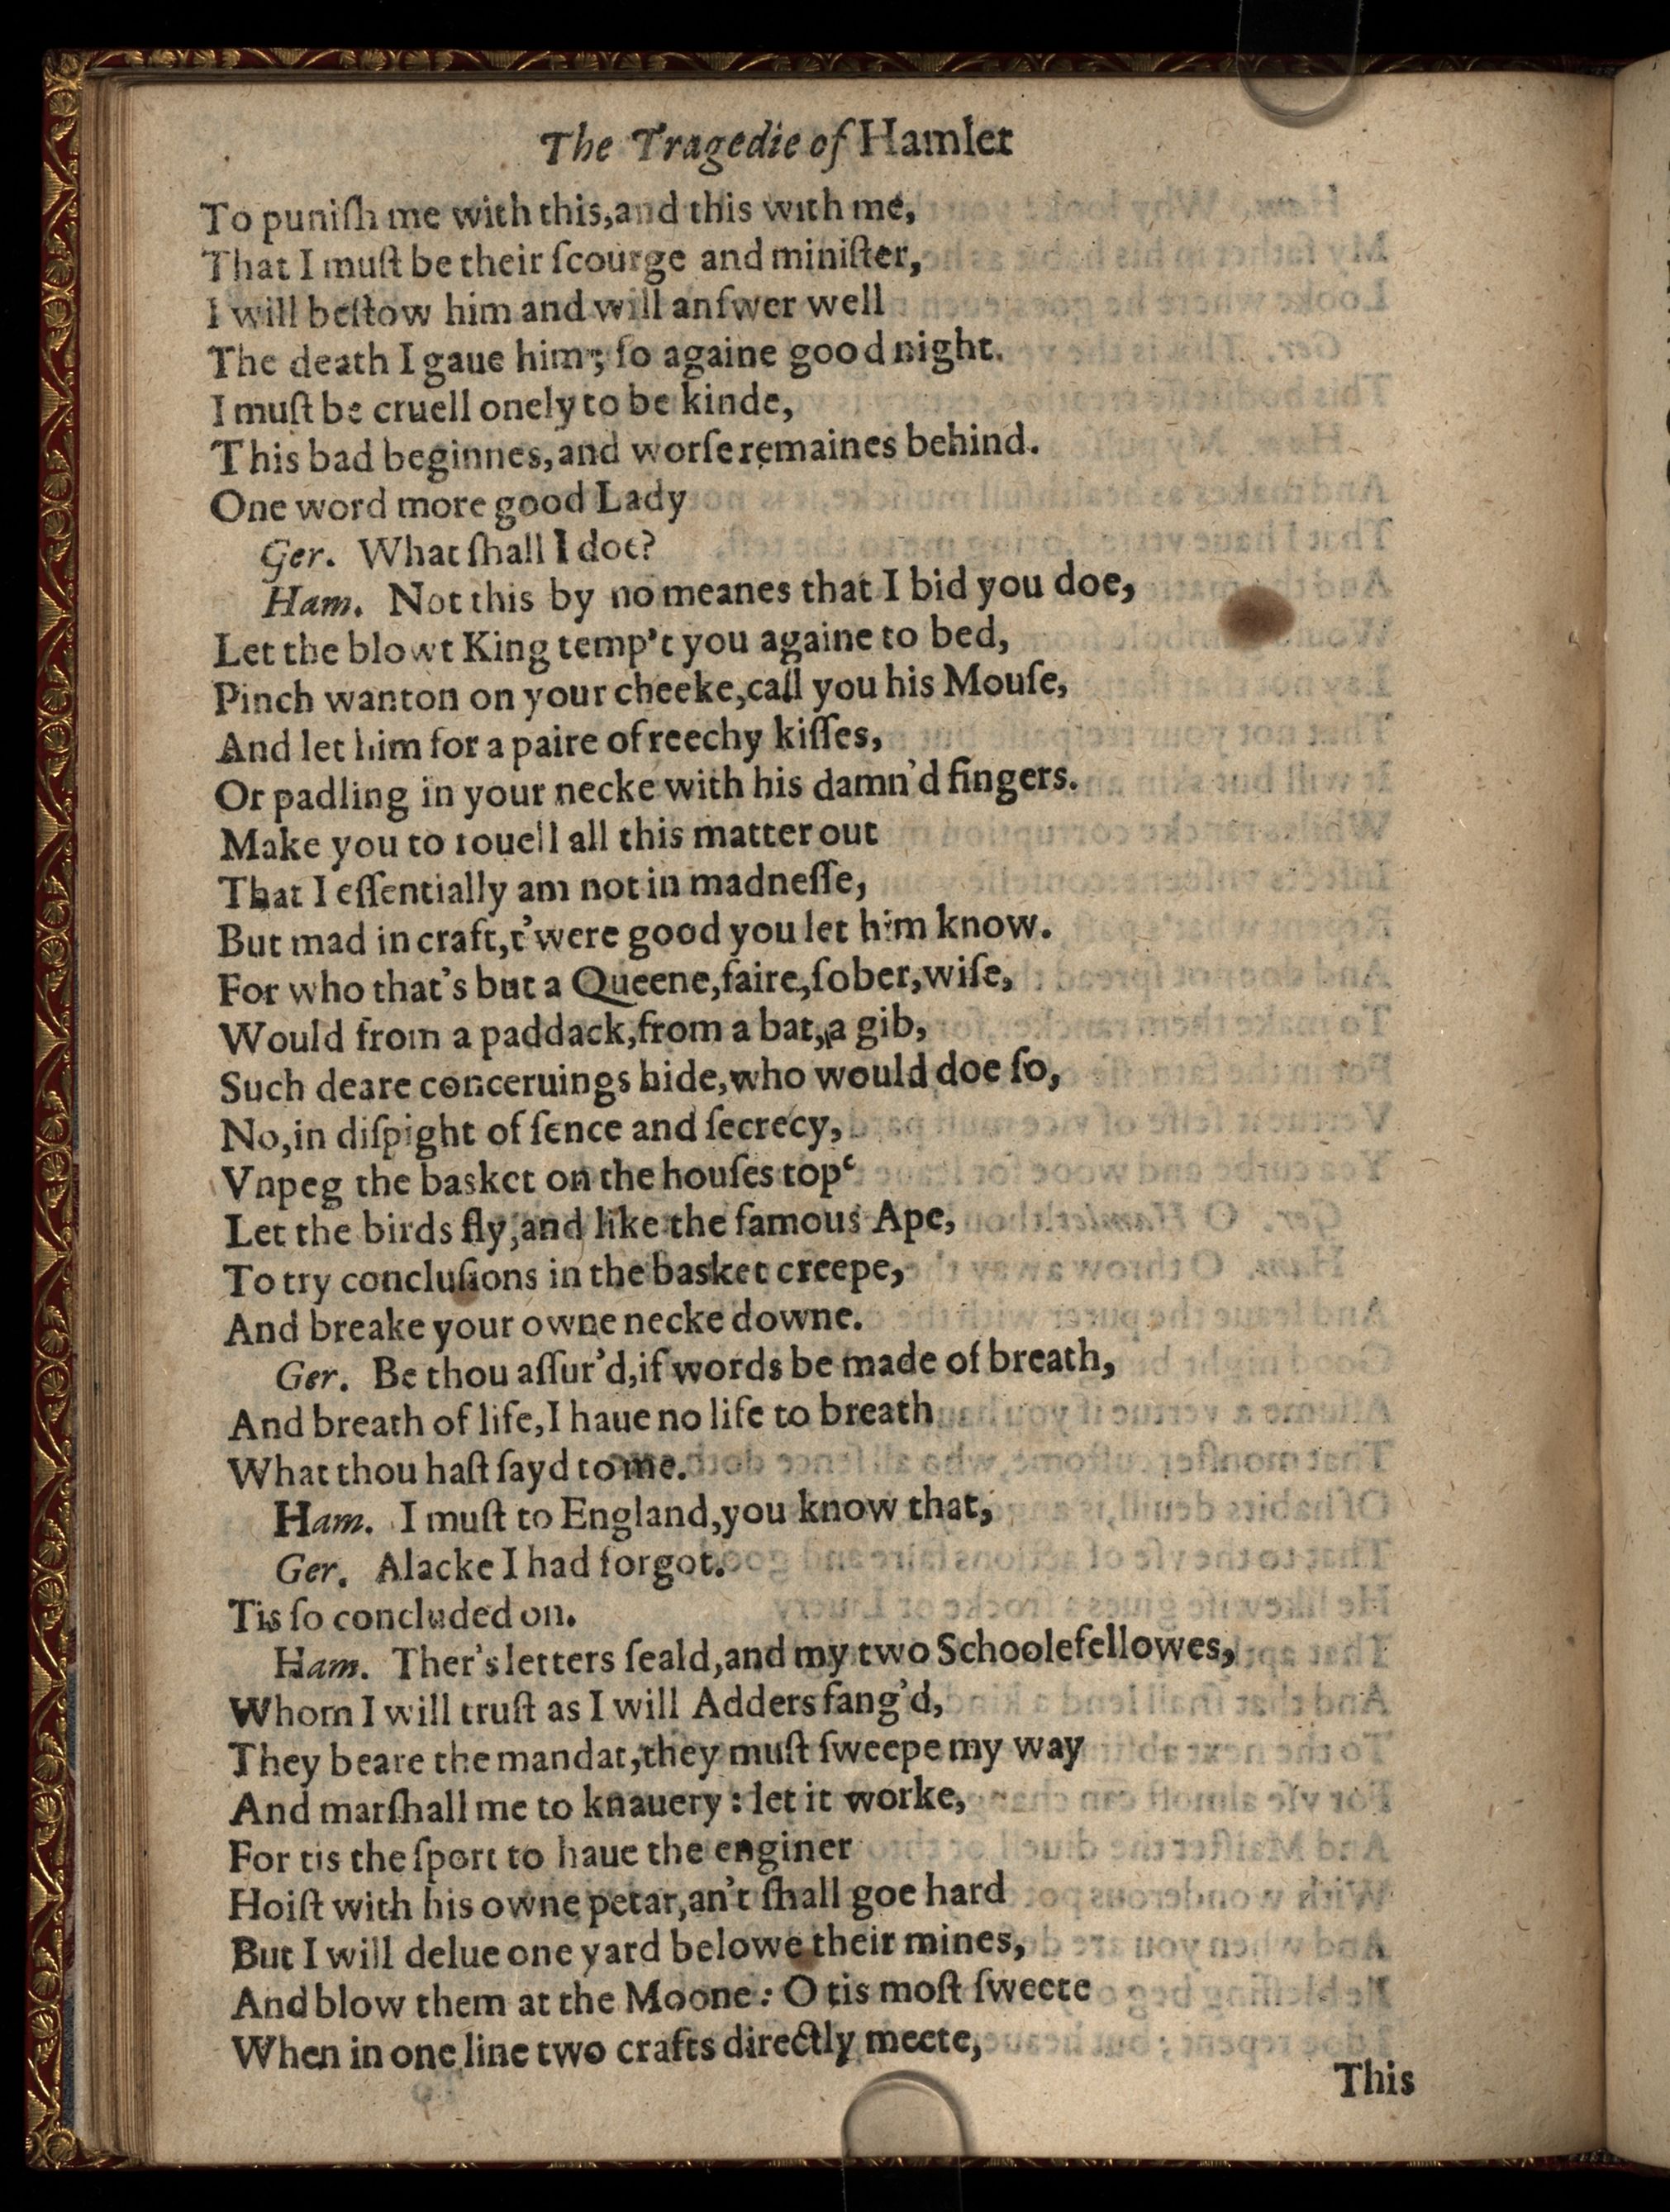 The Tragedie of Hamlet
To puniſh me with this,and this with me,
That I muſt be their ſcourge and miniſter,
I will beſtow him and will anſwer well
The death I gaue him; ſo againe good night.
I muſt be cruell onely to be kinde,
This bad beginnes,and worſe remaines behind.
One word more good Lady
Ger. What ſhall I doe?
Ham. Not this by no meanes that I bid you doe,
Let the blowt King temp't you againe to bed,
Pinch wanton on your cheeke,call you his Mouſe,
And let him for a paire of reechy kiſſes,
Or padling in your necke with his damn'd fingers.
Make you to rouell all this matter out
That I eſſentially am not in madneſſe,
But mad in craft,t'were good you let him know.
For who that's but a Queene,faire,ſober,wiſe,
Would from a paddack,from a bat,a gib,
Such deare conceruings hide,who would doe ſo,
No,in diſpight of ſence and ſecrecy,
Vnpeg the basket on the houſes top‘
Let the birds fly,and like the famous Ape,
To try concluſions in the basket creepe,
And breake your owne necke downe.
Ger. Be thou aſſur'd,if words be made of breath,
And breath of life,I haue no life to breath
What thou haſt ſayd to me.
Ham. I muſt to England,you know that,
Ger. Alacke I had forgot.
Tis ſo concluded on.
Ham. Ther's letters ſeald,and my two Schoolefellowes,
Whom I will truſt as I will Adders fang'd,
They beare the mandat,they muſt ſweepe my way
And marſhall me to knauery : let it worke,
For tis the ſport to haue the enginer
Hoiſt with his owne petar,an't ſhall goe hard
But I will delue one yard belowe their mines,
And blow them at the Moone : O tis moſt ſweete
When in one line two crafts directly meete,
This